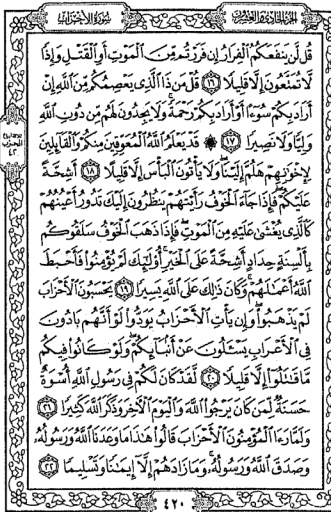 سُورَةُ الأَحْزَابِ الجُزْءُ الحَادِي وَالعِشْرُونَ
قُل لَّن يَنفَعَكُمُ ٱلْفِرَارُ إِن فَرَرْتُم مِّنَ ٱلْمَوْتِ أَوِ ٱلْقَتْلِ وَإِذًا
لَّا تُمَتَّعُونَ إِلَّا قَلِيلًا ١٦ قُلْ مَن ذَا ٱلَّذِى يَعْصِمُكُم مِّنَ ٱللَّهِ إِنْ
أَرَادَ بِكُمْ سُوٓءًا أَوْ أَرَادَ بِكُمْ رَحْمَةً وَلَا يَجِدُونَ لَهُم مِّن دُونِ ٱللَّهِ
وَلِيًّا وَلَا نَصِيرًا ١٧ ۞ قَدْ يَعْلَمُ ٱللَّهُ ٱلْمُعَوِّقِينَ مِنكُمْ وَٱلْقَآئِلِينَ
لِإِخْوَٰنِهِمْ هَلُمَّ إِلَيْنَا وَلَا يَأْتُونَ ٱلْبَأْسَ إِلَّا قَلِيلًا ١٨ أَشِحَّةً
عَلَيْكُمْ فَإِذَا جَآءَ ٱلْخَوْفُ رَأَيْتَهُمْ يَنظُرُونَ إِلَيْكَ تَدُورُ أَعْيُنُهُمْ
كَٱلَّذِى يُغْشَىٰ عَلَيْهِ مِنَ ٱلْمَوْتِ فَإِذَا ذَهَبَ ٱلْخَوْفُ سَلَقُوكُم
بِأَلْسِنَةٍ حِدَادٍ أَشِحَّةً عَلَى ٱلْخَيْرِ أُو۟لَٰٓئِكَ لَمْ يُؤْمِنُوا۟ فَأَحْبَطَ
ٱللَّهُ أَعْمَٰلَهُمْ وَكَانَ ذَٰلِكَ عَلَى ٱللَّهِ يَسِيرًا ١٩ يَحْسَبُونَ ٱلْأَحْزَابَ
لَمْ يَذْهَبُوا۟ وَإِن يَأْتِ ٱلْأَحْزَابُ يَوَدُّوا۟ لَوْ أَنَّهُم بَادُونَ
فِى ٱلْأَعْرَابِ يَسْـَٔلُونَ عَنْ أَنۢبَآئِكُمْ وَلَوْ كَانُوا۟ فِيكُم
مَّا قَٰتَلُوٓا۟ إِلَّا قَلِيلًا ٢٠ لَّقَدْ كَانَ لَكُمْ فِى رَسُولِ ٱللَّهِ أُسْوَةٌ
حَسَنَةٌ لِّمَن كَانَ يَرْجُوا۟ ٱللَّهَ وَٱلْيَوْمَ ٱلْءَاخِرَ وَذَكَرَ ٱللَّهَ كَثِيرًا ٢١
وَلَمَّا رَءَا ٱلْمُؤْمِنُونَ ٱلْأَحْزَابَ قَالُوا۟ هَٰذَا مَا وَعَدَنَا ٱللَّهُ وَرَسُولُهُۥ
وَصَدَقَ ٱللَّهُ وَرَسُولُهُۥ وَمَا زَادَهُمْ إِلَّآ إِيمَٰنًا وَتَسْلِيمًا ٢٢
٤٢٠
الحزب
٤٢